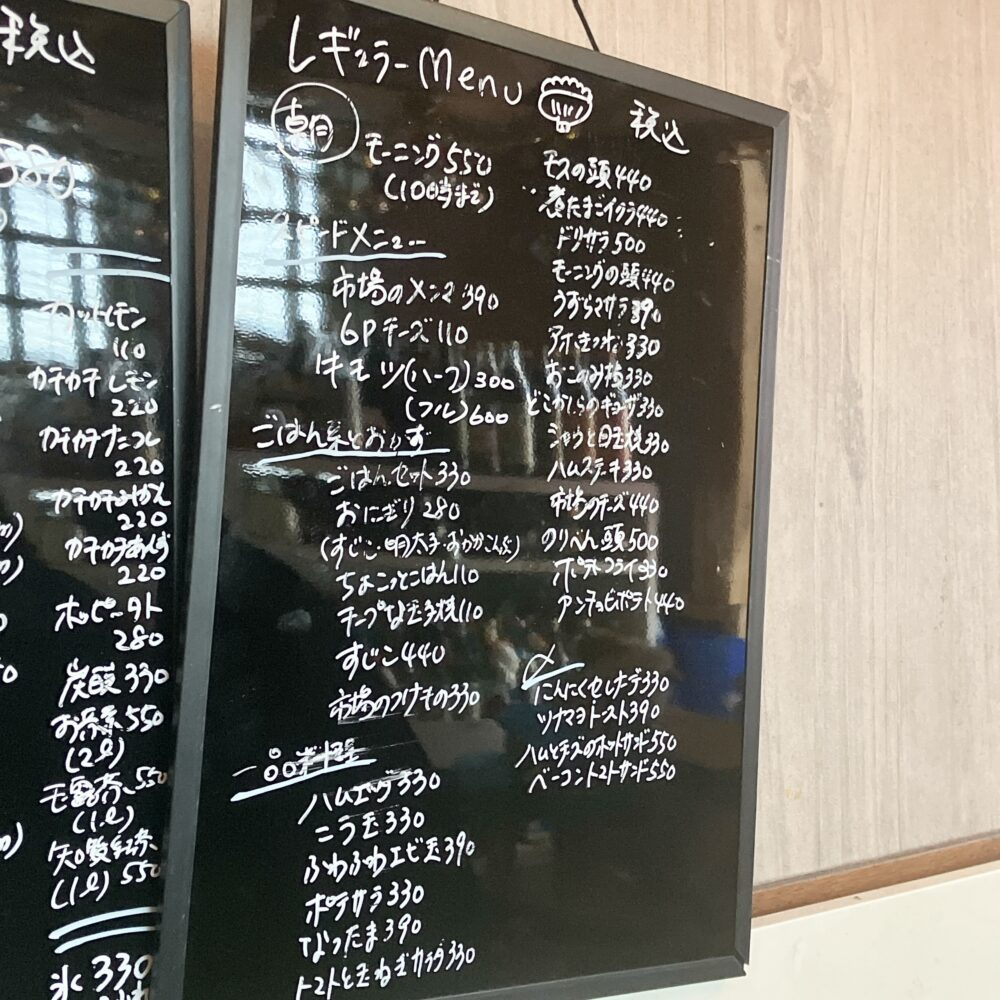 税込
カットレモン
110
カチカチレモン
220
カチカチナニコレ
220
カチカチみかん
220
カチカチあんず
220
ホッピー外
280
炭酸 330
お茶系 550
(2ℓ)
(1ℓ)
(1ℓ) 550
氷 330
レギュラーMenu 税込
朝 モーニング550
(10時まで)
スピードメニュー
市場のメンマ390
6Pチーズ110
牛モツ(ハーフ)300
(フル)600
ごはん系とおかず
ごはんセット330
おにぎり280
(すじこ・明太子・おかかこんぶ)
ちょこっとごはん110
チープな玉子焼110
すじこ440
市場のつけもの330
一品料理
ハムエッグ330
こう玉330
ふわふわエビ玉390
ポテサラ330
なったま390
トマトと玉ねぎカラダ330
モスの頭440
煮たまごイクラ440
ドリサラ500
モーニングの頭440
うずらマサラ390
330
330
どこかしらのギョーザ330
シャウと目玉焼330
ハムステーキ330
市場のチーズ440
のりべん頭500
ポテトフライ330
アンチョビポテト440
〆
にんにくセレナーデ330
ツナマヨトースト390
ハムとチーズのホットサンド550
ベーコントマトサンド550